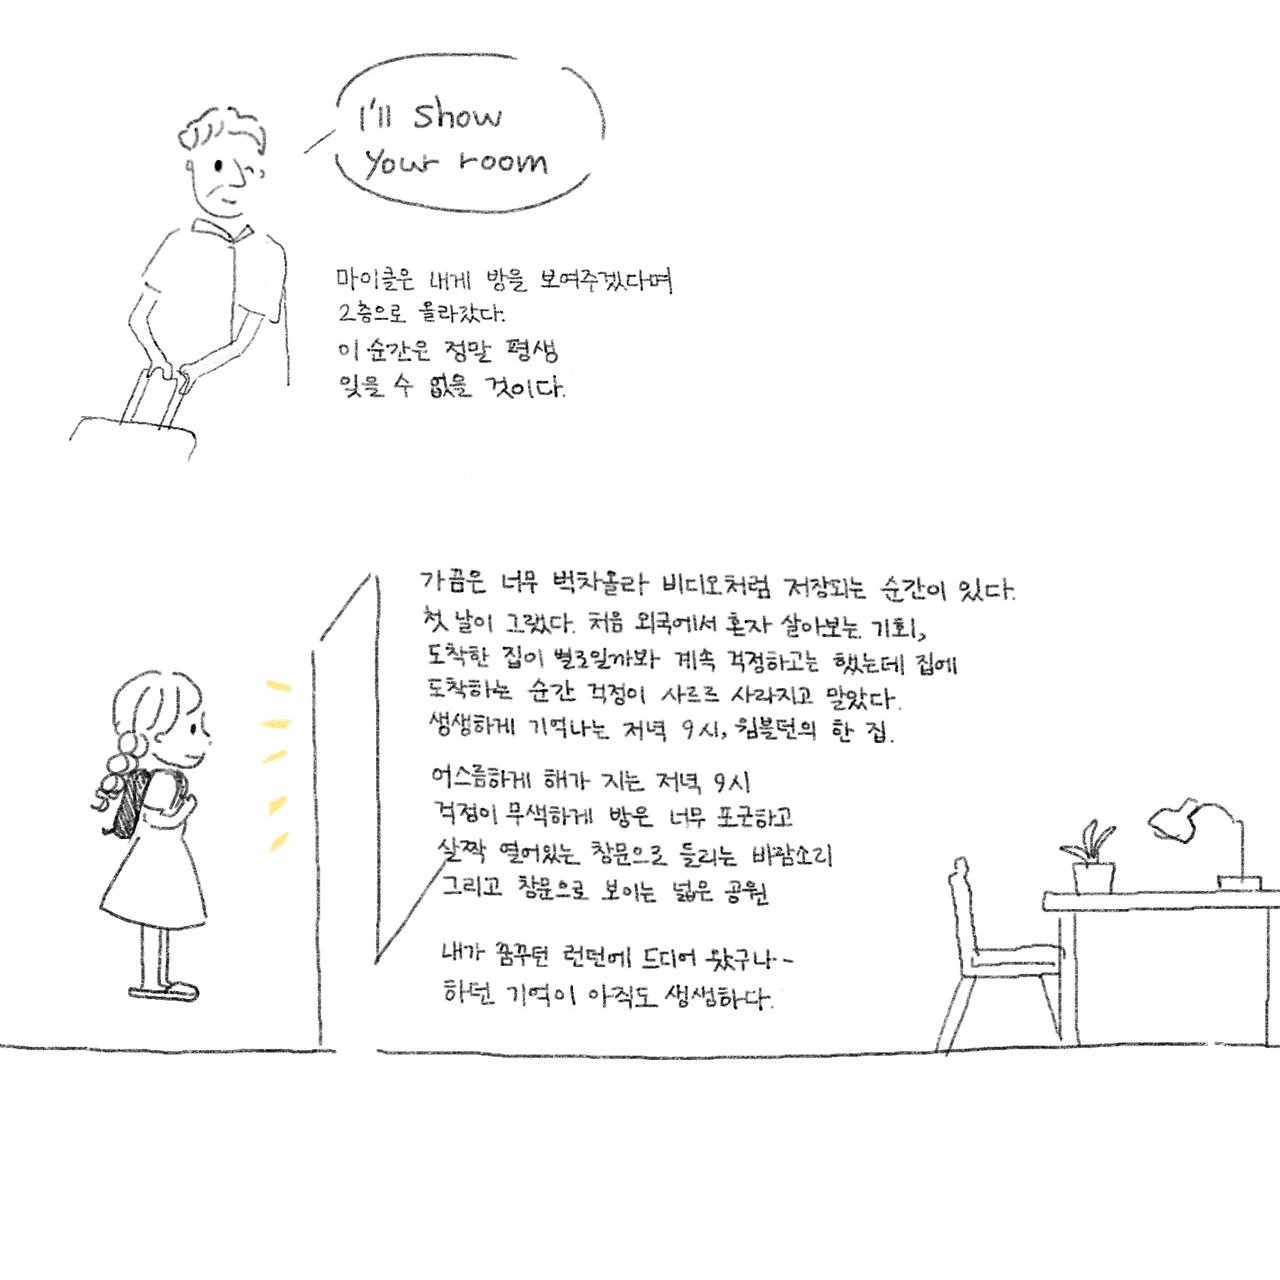 I'll show
your room
마이클은 내게 방을 보여주겠다며
2층으로 올라갔다.
이 순간은 정말 평생
잊을 수 없을 것이다.
가끔은 너무 벅차올라 비디오처럼 저장되는 순간이 있다.
첫 날이 그랬다. 처음 외국에서 혼자 살아보는 기회,
도착한 집이 별로일까봐 계속 걱정하고는 했는데 집에
도착하는 순간 걱정이 사르르 사라지고 말았다.
생생하게 기억나는 저녁 9시, 윔블던의 한 집.
어스름하게 해가 지는 저녁 9시
걱정이 무색하게 방은 너무 포근하고
살짝 열어있는 창문으로 들리는 바람소리
그리고 창문으로 보이는 넓은 공원
내가 꿈꾸던 런던에 드디어 왔구나~
하던 기억이 아직도 생생하다.